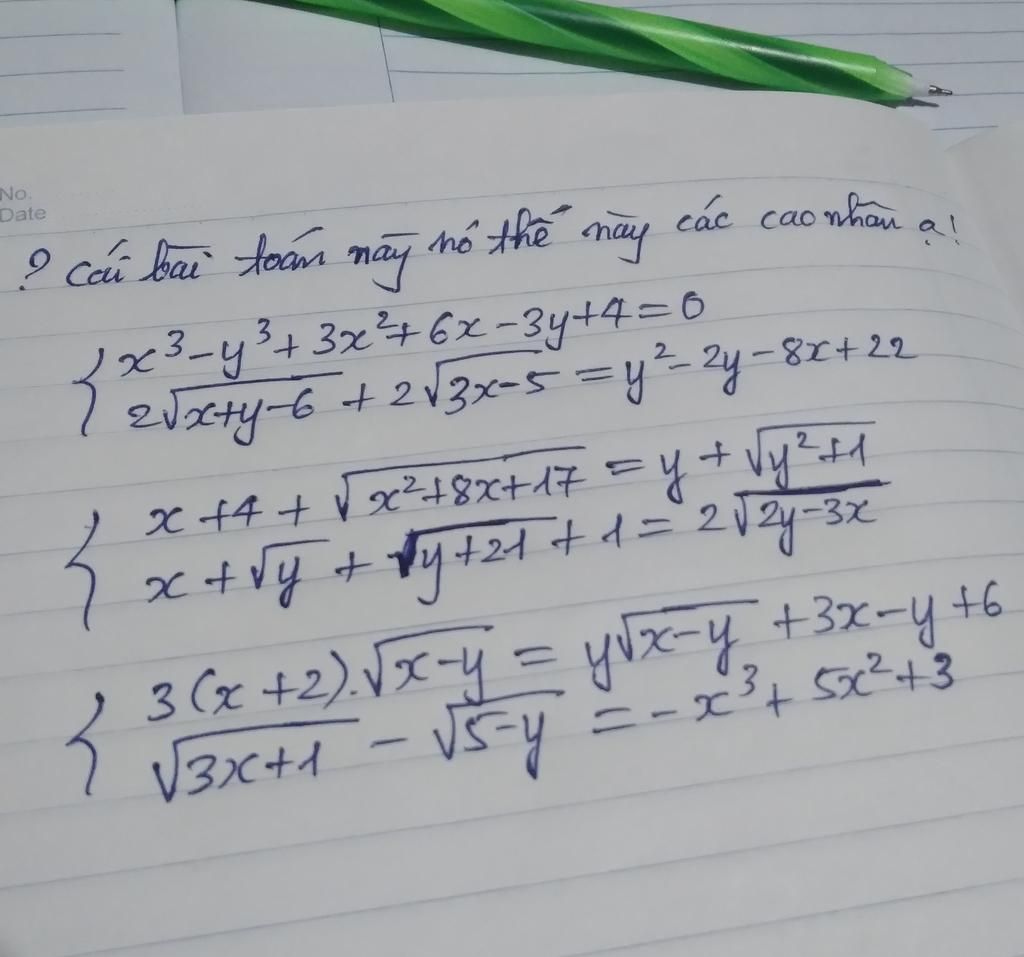 No.
Date
? Cái bài toán này nó thế này các cao nhân ạ!
x³ - y³ + 3x² + 6x - 3y + 4 = 0
2√(x+y-6) + 2√(3x-5) = y² - 2y - 8x + 22
x + 4 + √(x²+8x+17) = y + √(y²+1)
x + √y + √(y+21) + 1 = 2√(2y-3x)
3(x+2).√(x-y) = y√(x-y) + 3x - y + 6
√(3x+1) - √(5-y) = -x³ + 5x² + 3